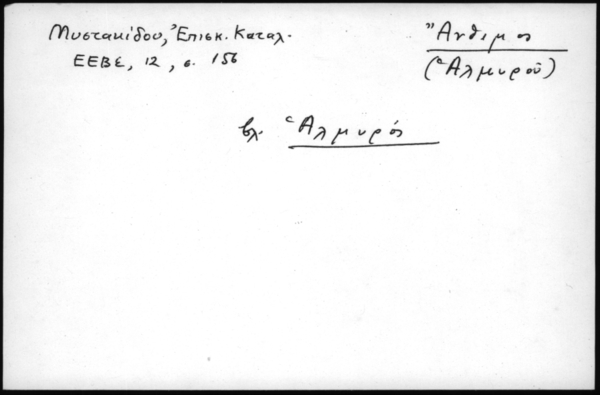 Μυστακίδου, Ἐπισκ. Καταλ.
ΕΕΒΣ, 12, σ. 156
Ἄνθιμος
(Ἁλμυροῦ)
βλ. Ἁλμυρός